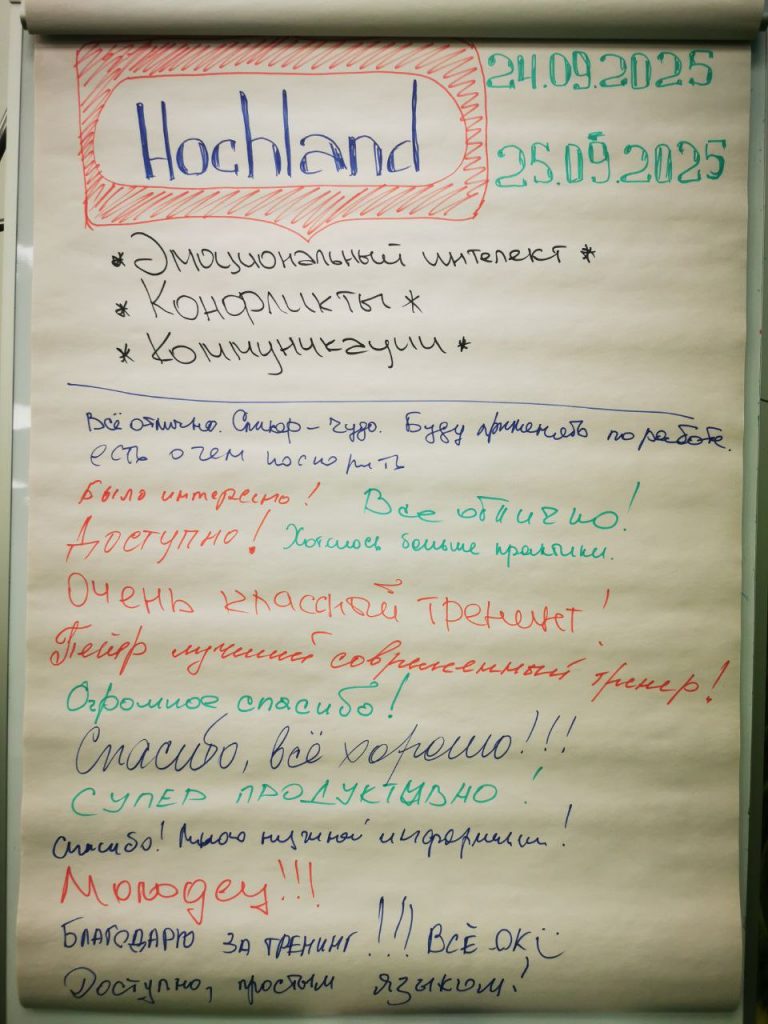 Hochland
24.09.2025
25.09.2025
* Эмоциональный интелект *
* Конфликты *
* Коммуникации *
Всё отлично. Спикер – чудо. Буду применять по работе.
есть о чем поспорить
Было интересно! Все отлично!
Доступно! Хотелось больше практики.
Очень классный тренинг!
Пейер лучший современный тренер!
Огромное спасибо!
Спасибо, всё хорошо!!!
СУПЕР ПРОДУКТИВНО!
Спасибо! Много нужной информации!
Молодец!!!
БЛАГОДАРЮ ЗА ТРЕНИНГ!!! ВСЁ ОК
Доступно, простым языком!